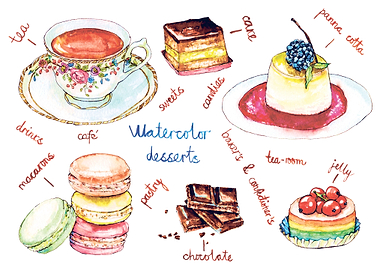 tea
cake
panna cotta
sweets
candies
drinks
café
Watercolor
desserts
baker's & confectioner's
tea-room
macarons
pastry
jelly
chocolate